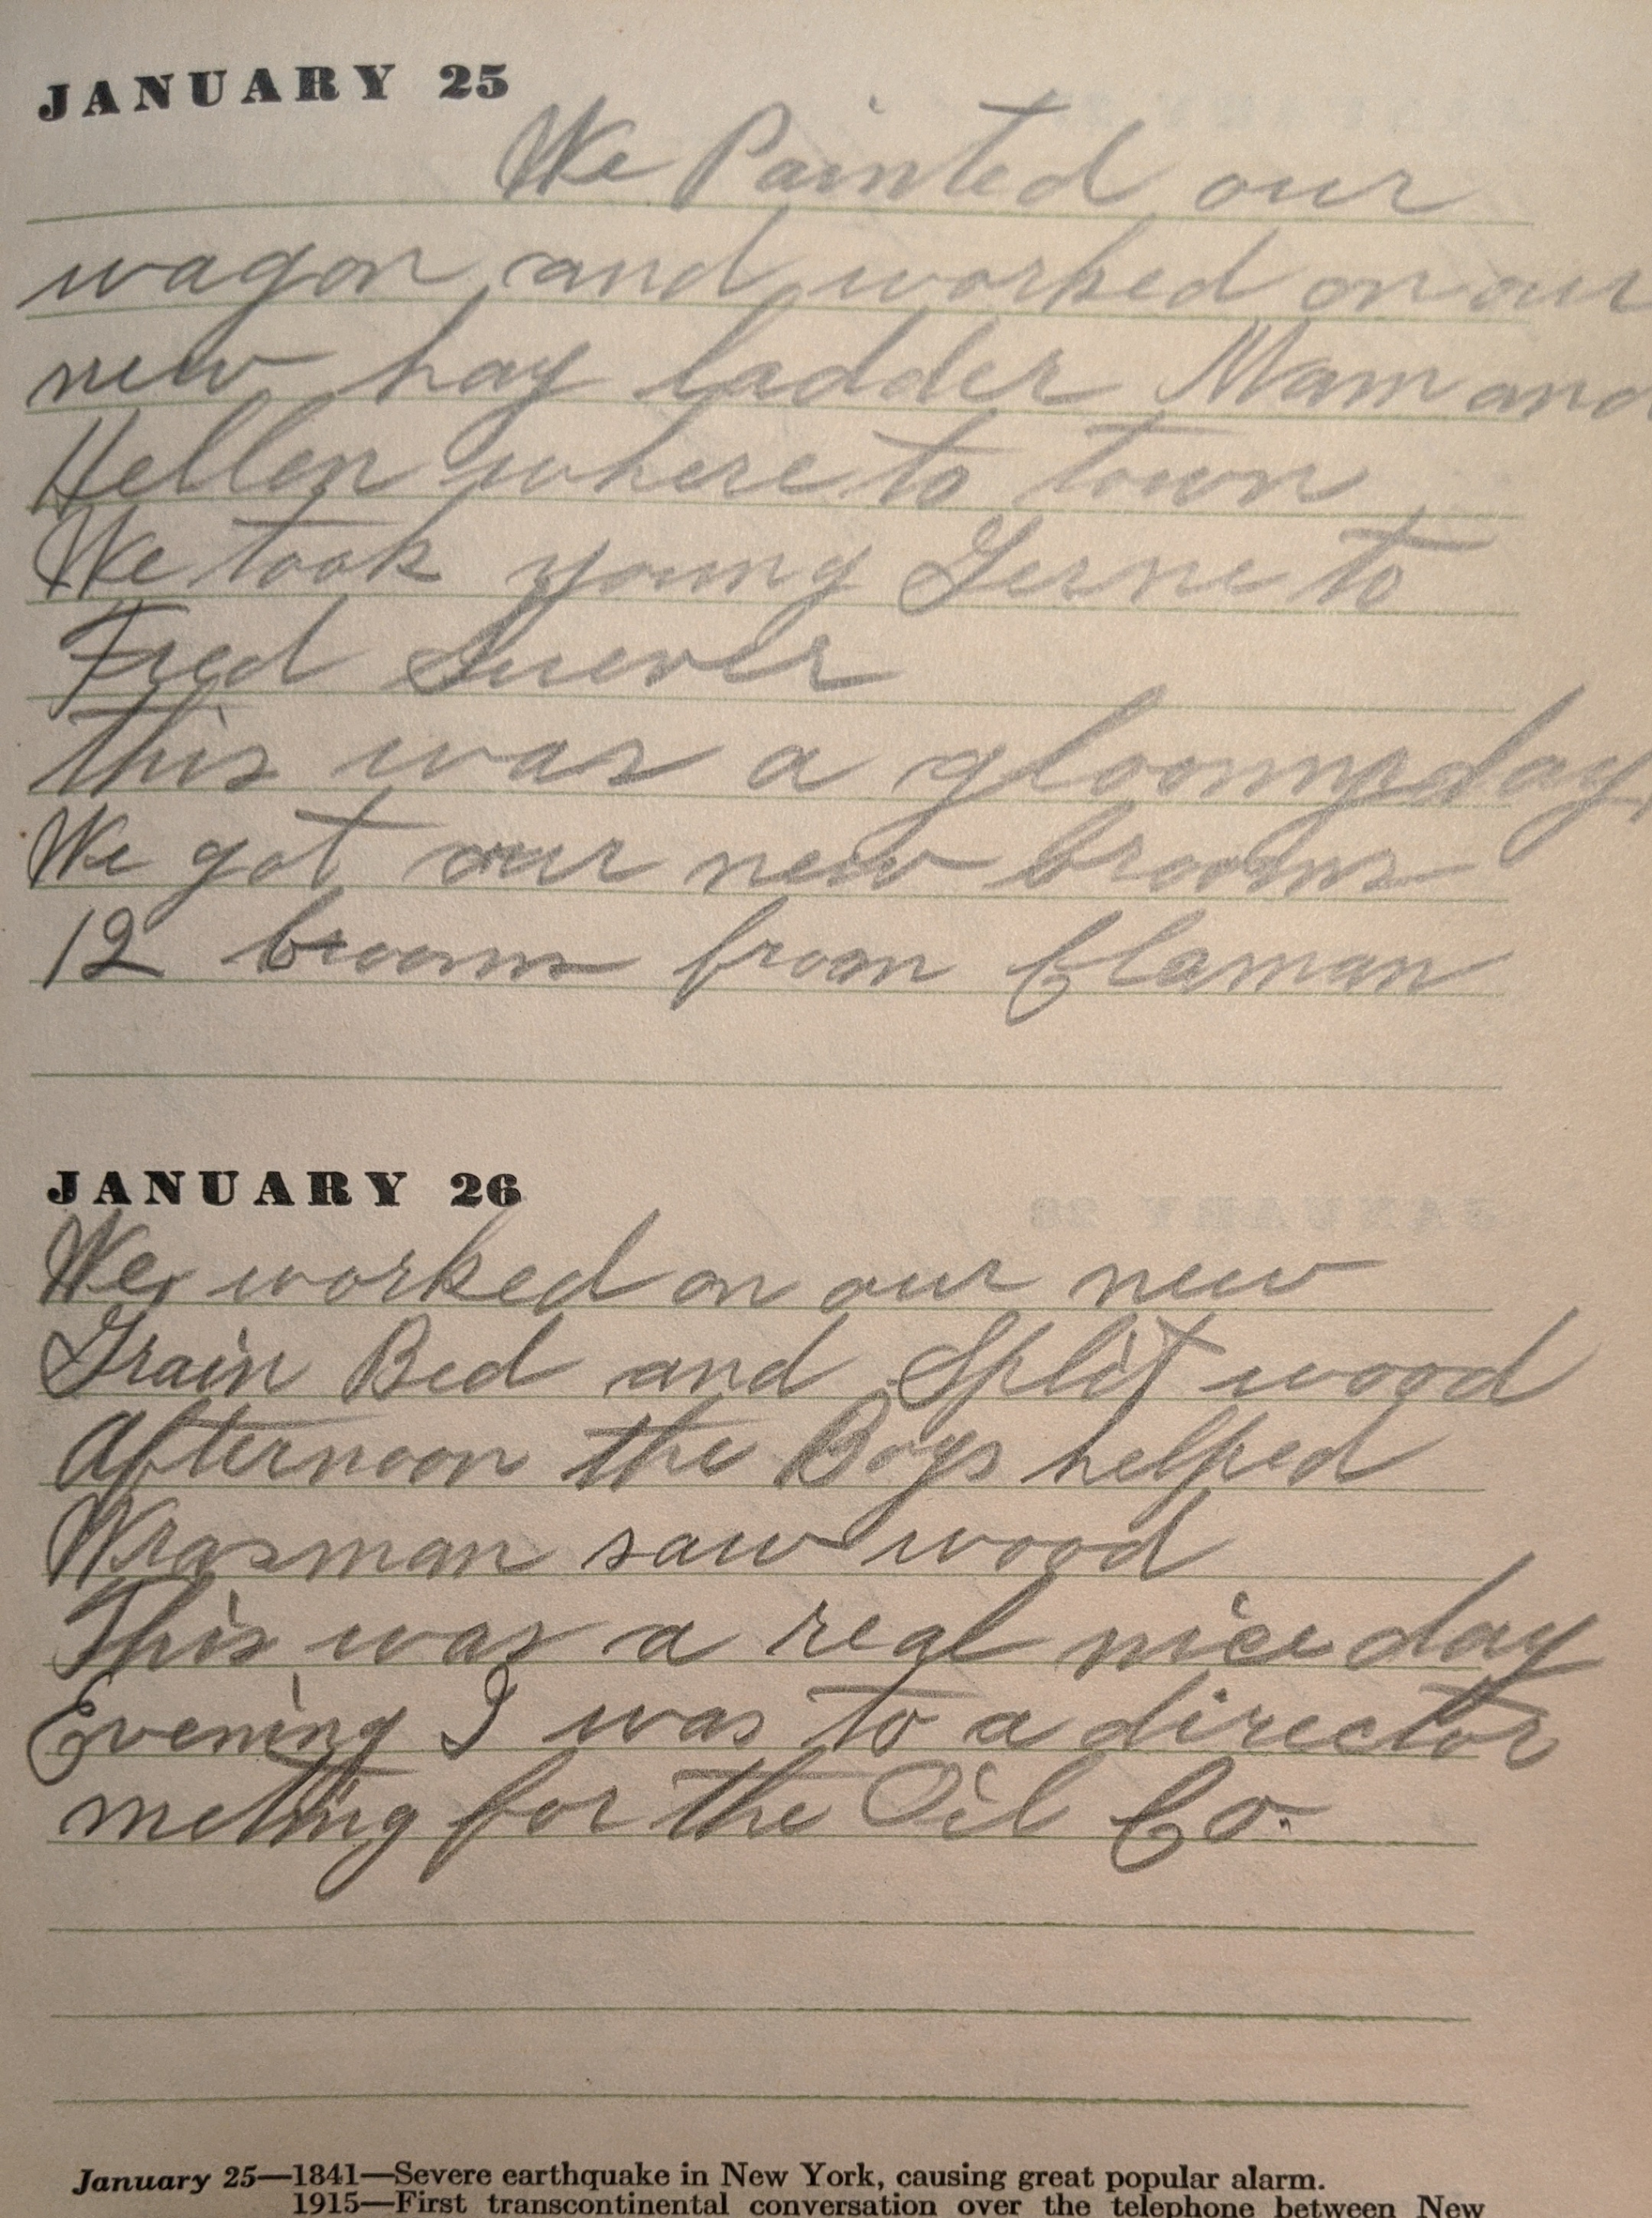 JANUARY 25
We Painted our
wagon and worked on our
new hay ladder Mam and
Hellen where to town
We took young Gerne to
Fred Suever
this was a gloomy day
We got our new brooms
12 brooms from Claman
JANUARY 26
We worked on our new
Grain Bed and Split wood
Afternoon the Boys helped
Wrasman saw wood
This was a real nice day
Evening I was to a director
meting for the Oil Co.
January 25—1841—Severe earthquake in New York, causing great popular alarm.
1915—First transcontinental conversation over the telephone between New